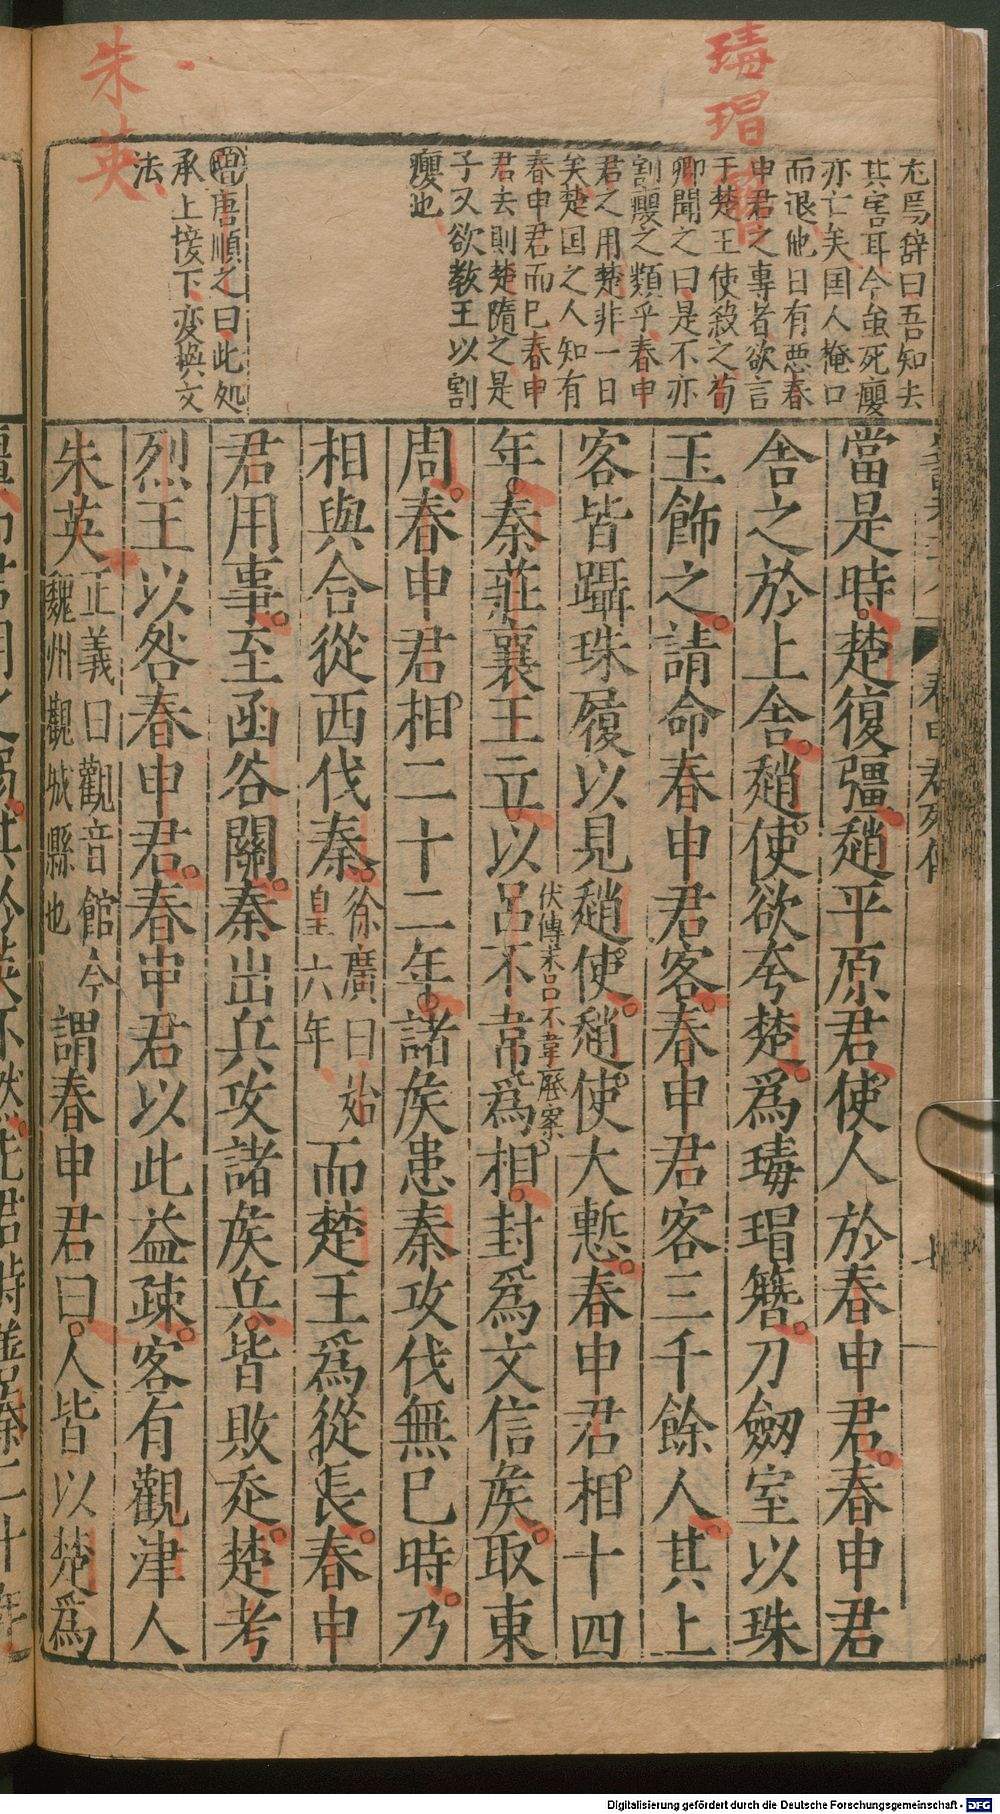 瑇瑁簪
朱英
尤焉辞曰吾知去
其害耳今虽死癭
亦亡矣国人掩口
而退他日有恶春
申君之專者欲言
于楚王使殺之荀
卿聞之曰是不亦
割癭之類乎春申
君之用楚非一日
矣楚国之人知有
春申君而已春申
君去則楚隨之是
子又欲教王以割
癭也
增唐順之曰此処
承上接下变換文
法
當是時楚復彊趙平原君使人於春申君春申君
舍之於上舍趙使欲夸楚爲瑇瑁簪刀劒室以珠
玉飾之請命春申君客春申君客三千餘人其上
客皆躡珠履以見趙使趙使大慙春申君相十四
年秦莊襄王立以呂不韋爲相封爲文信矦取東
伏傳末呂不韋厯案
周春申君相二十二年諸矦患秦攻伐無已時乃
相與合從西伐秦徐廣曰始皇六年而楚王爲從長春申
君用事至函谷關秦出兵攻諸矦兵皆敗走楚考
烈王以咎春申君春申君以此益疎客有觀津人
朱英正義曰觀音館今魏州觀城縣也謂春申君曰人皆以楚爲
春申君列傳
Digitalisierung gefördert durch die Deutsche Forschungsgemeinschaft - DFG